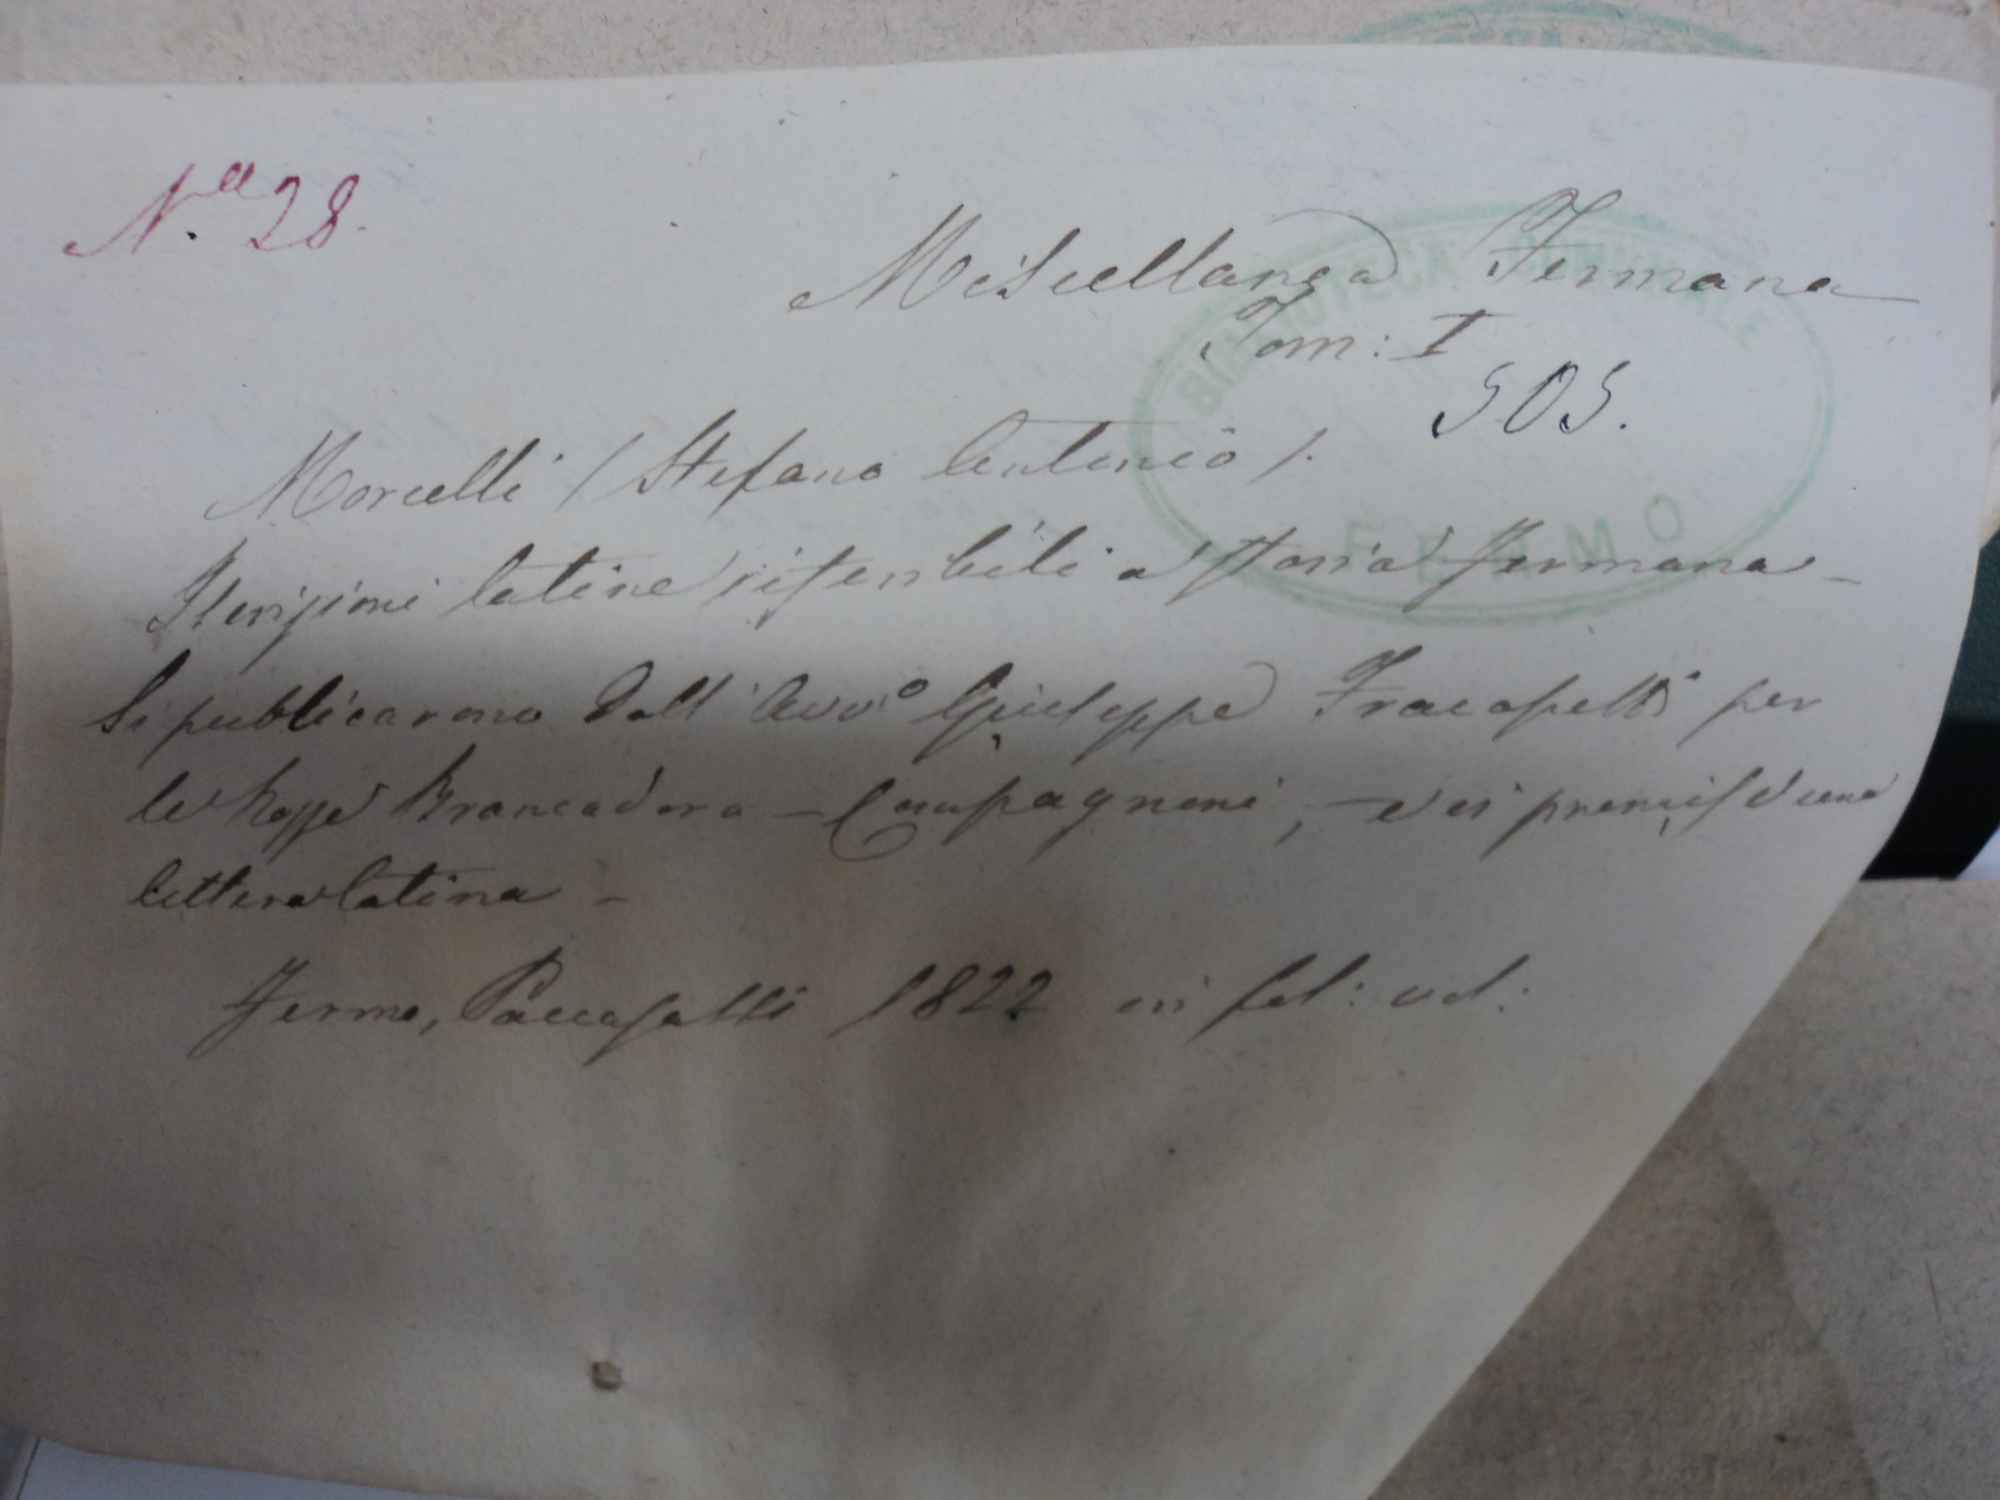 N.a 28.
Miscellanea Fermana
Tom: I
505.
Morcelli (Stefano Antonio).
Iscrizioni latine riferibili a storia Fermana -
Si publicarono dall' Avv.o Giuseppe Fracassetti per
le Nozze Brancadoro - Compagnoni, - e vi premise una
lettera latina -
Fermo, Paccasassi 1822 in fol: vol:
FERMO